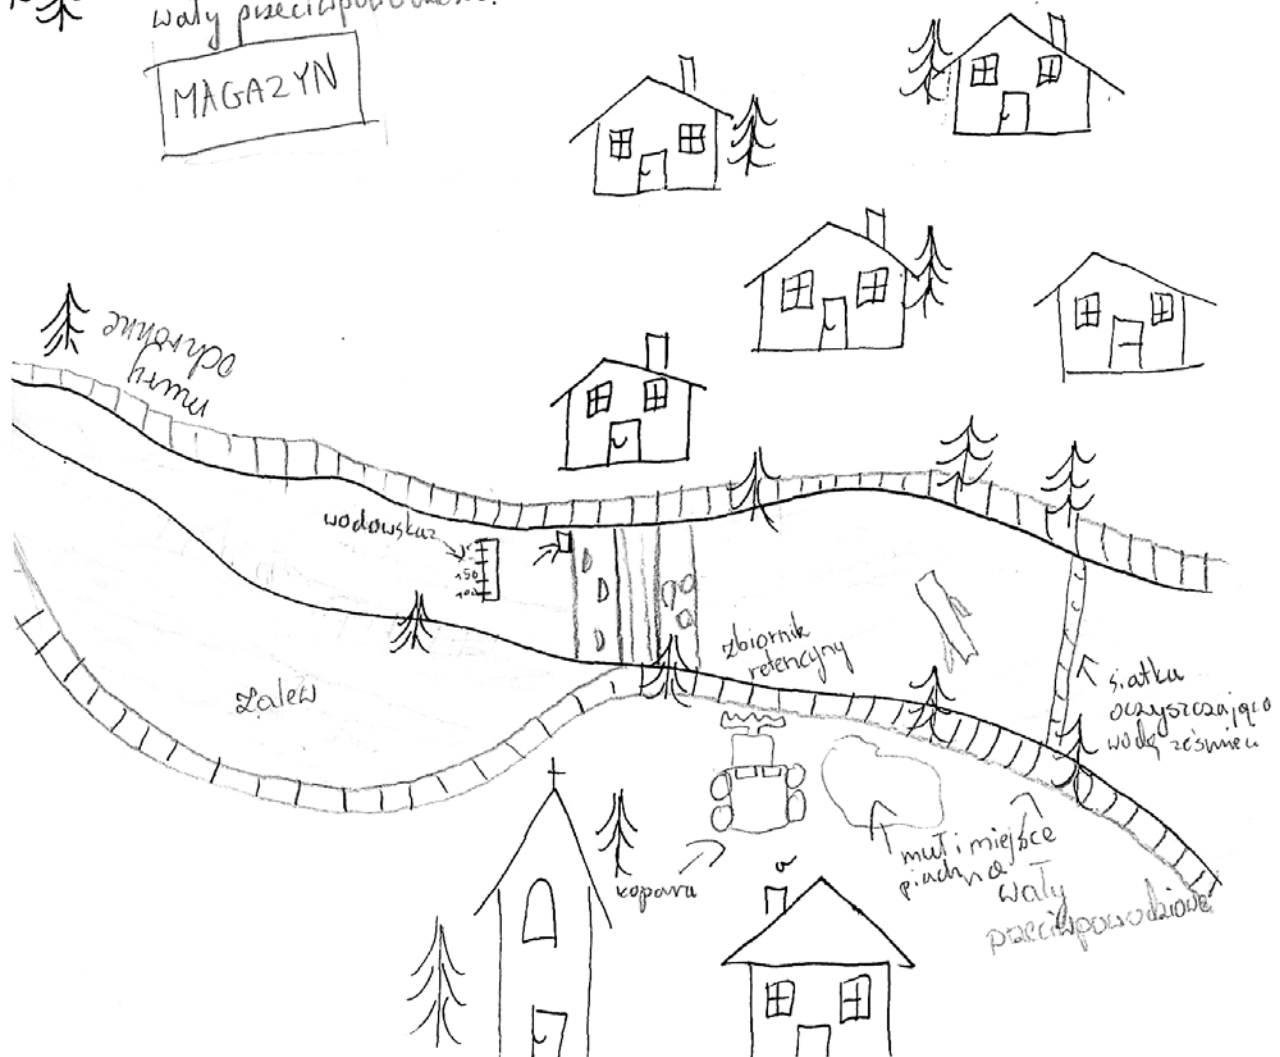 wały przeciwpowodziowe.
MAGAZYN
mury
ochronne
wodowskaz
150
100
zbiornik
retencyjny
Zalew
siatka
oczyszczająca
wodę ze śmieci
kopara
muł i miejsce
na
piach
wały
przeciwpowodziowe